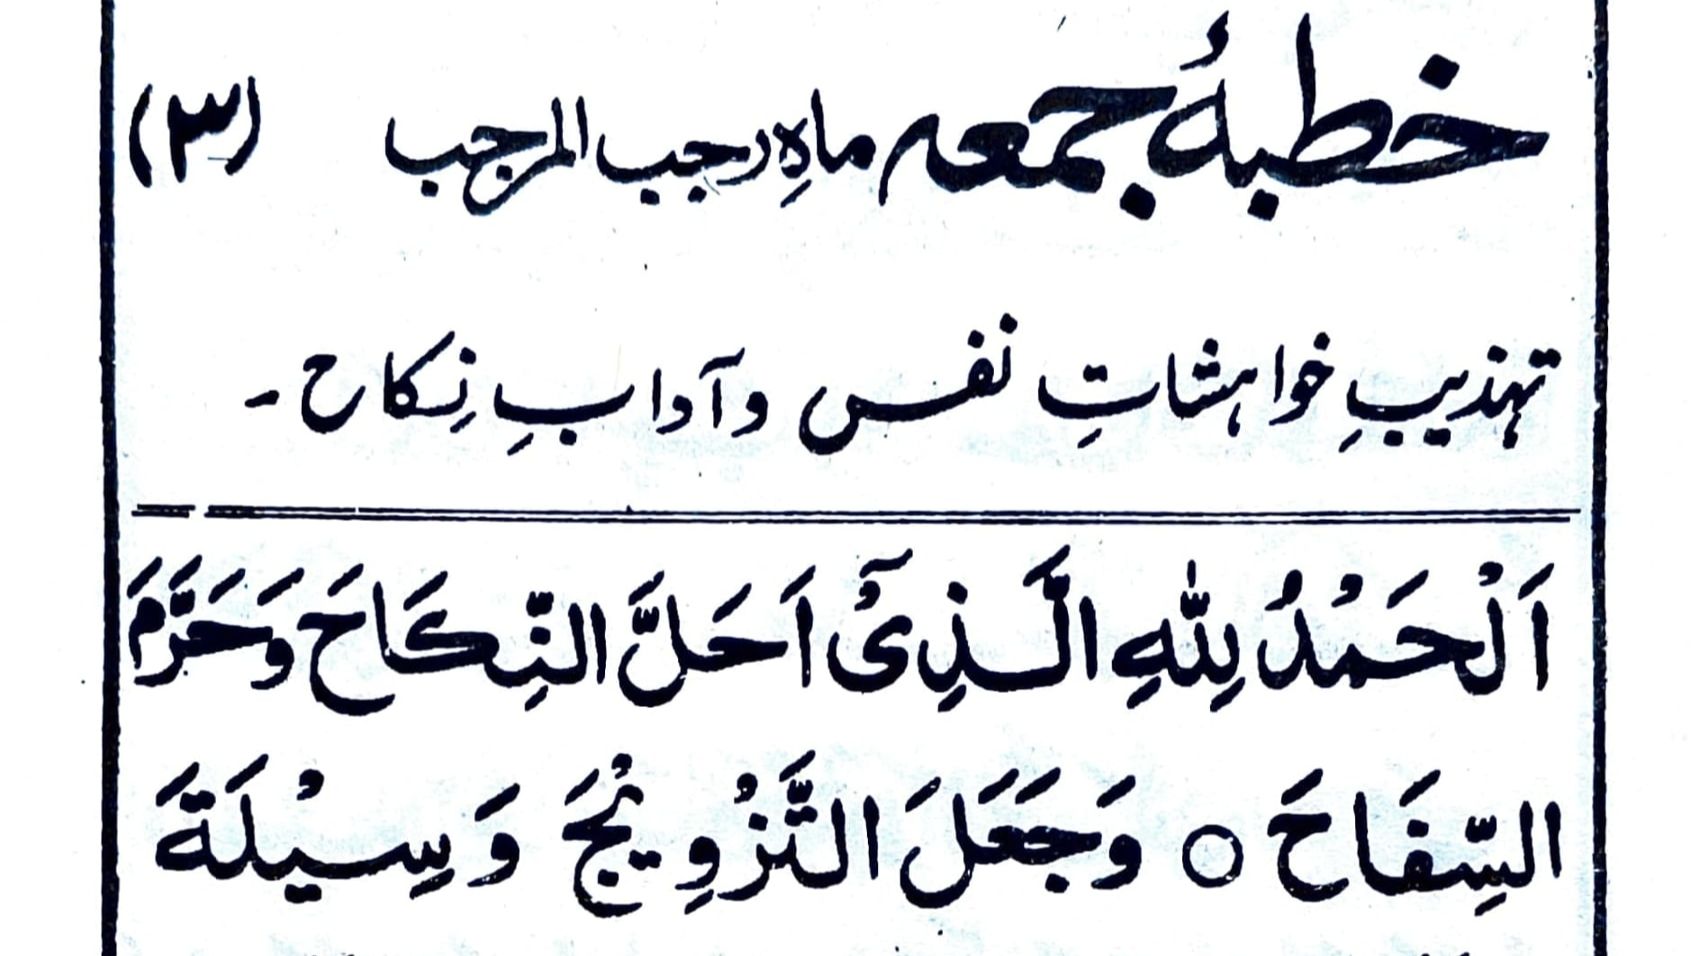 خطبۂ جمعہ ماہِ رجب المرجب (۳)
تہذیبِ خواہشاتِ نفس و آدابِ نِکاح ۔
اَلْحَمْدُ لِلّٰهِ الَّذِیْٓ اَحَلَّ النِّكَاحَ وَحَرَّمَ
السِّفَاحَ ○ وَجَعَلَ التَّزْوِیْجَ وَسِیْلَةَ